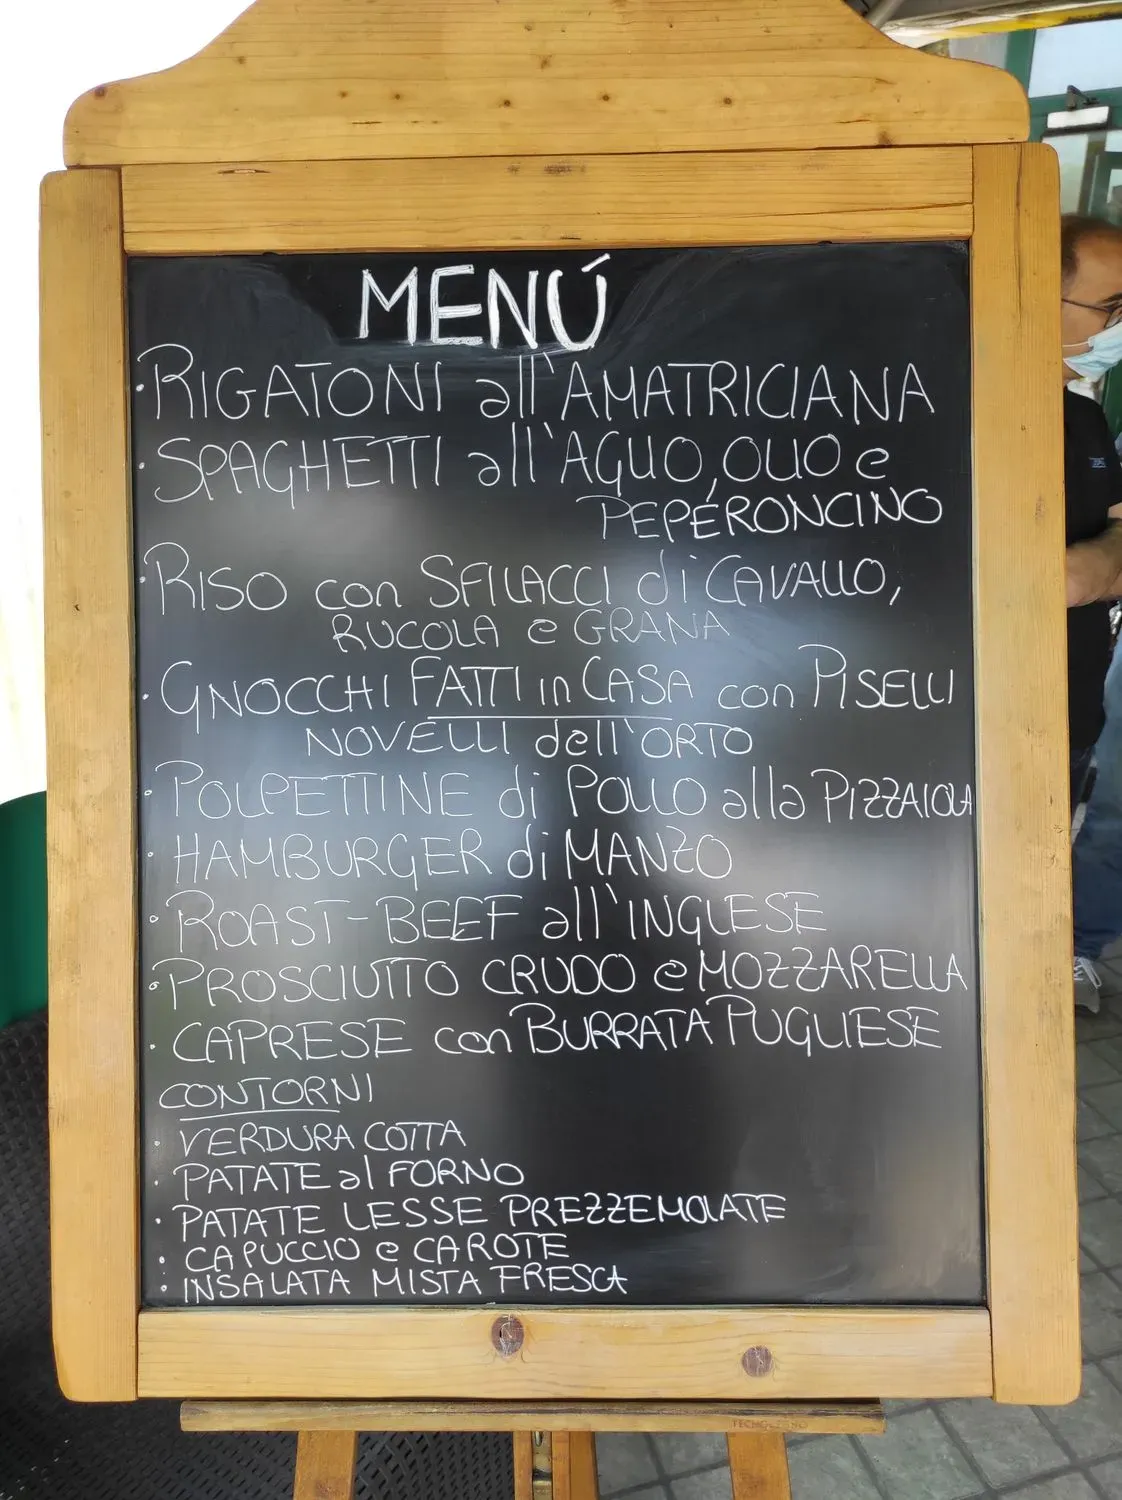 MENÚ
· RIGATONI all'AMATRICIANA
· SPAGHETTI all'AGLIO, OLIO e
PEPERONCINO
· RISO con SFILACCI di CAVALLO,
RUCOLA e GRANA
· GNOCCHI FATTI in CASA con PISELLI
NOVELLI dell'ORTO
· POLPETTINE di POLLO alla PIZZAIOLA
· HAMBURGER di MANZO
· ROAST-BEEF all'INGLESE
· PROSCIUTTO CRUDO e MOZZARELLA
· CAPRESE con BURRATA PUGLIESE
CONTORNI
· VERDURA COTTA
· PATATE al FORNO
· PATATE LESSE PREZZEMOLATE
· CAPUCCIO e CAROTE
· INSALATA MISTA FRESCA